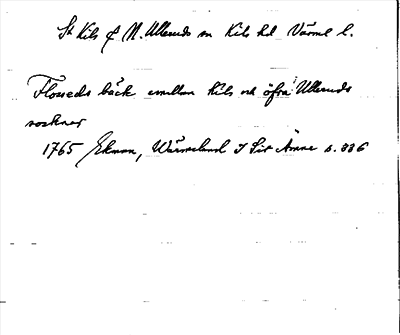 St Kils & N. Ulleruds sn Kils hd Värml l.
Flosseds bäck emellan Kils och öfra Ulleruds
socknar
1765 Ekman, Wärmeland I Sin Ämne s. 336